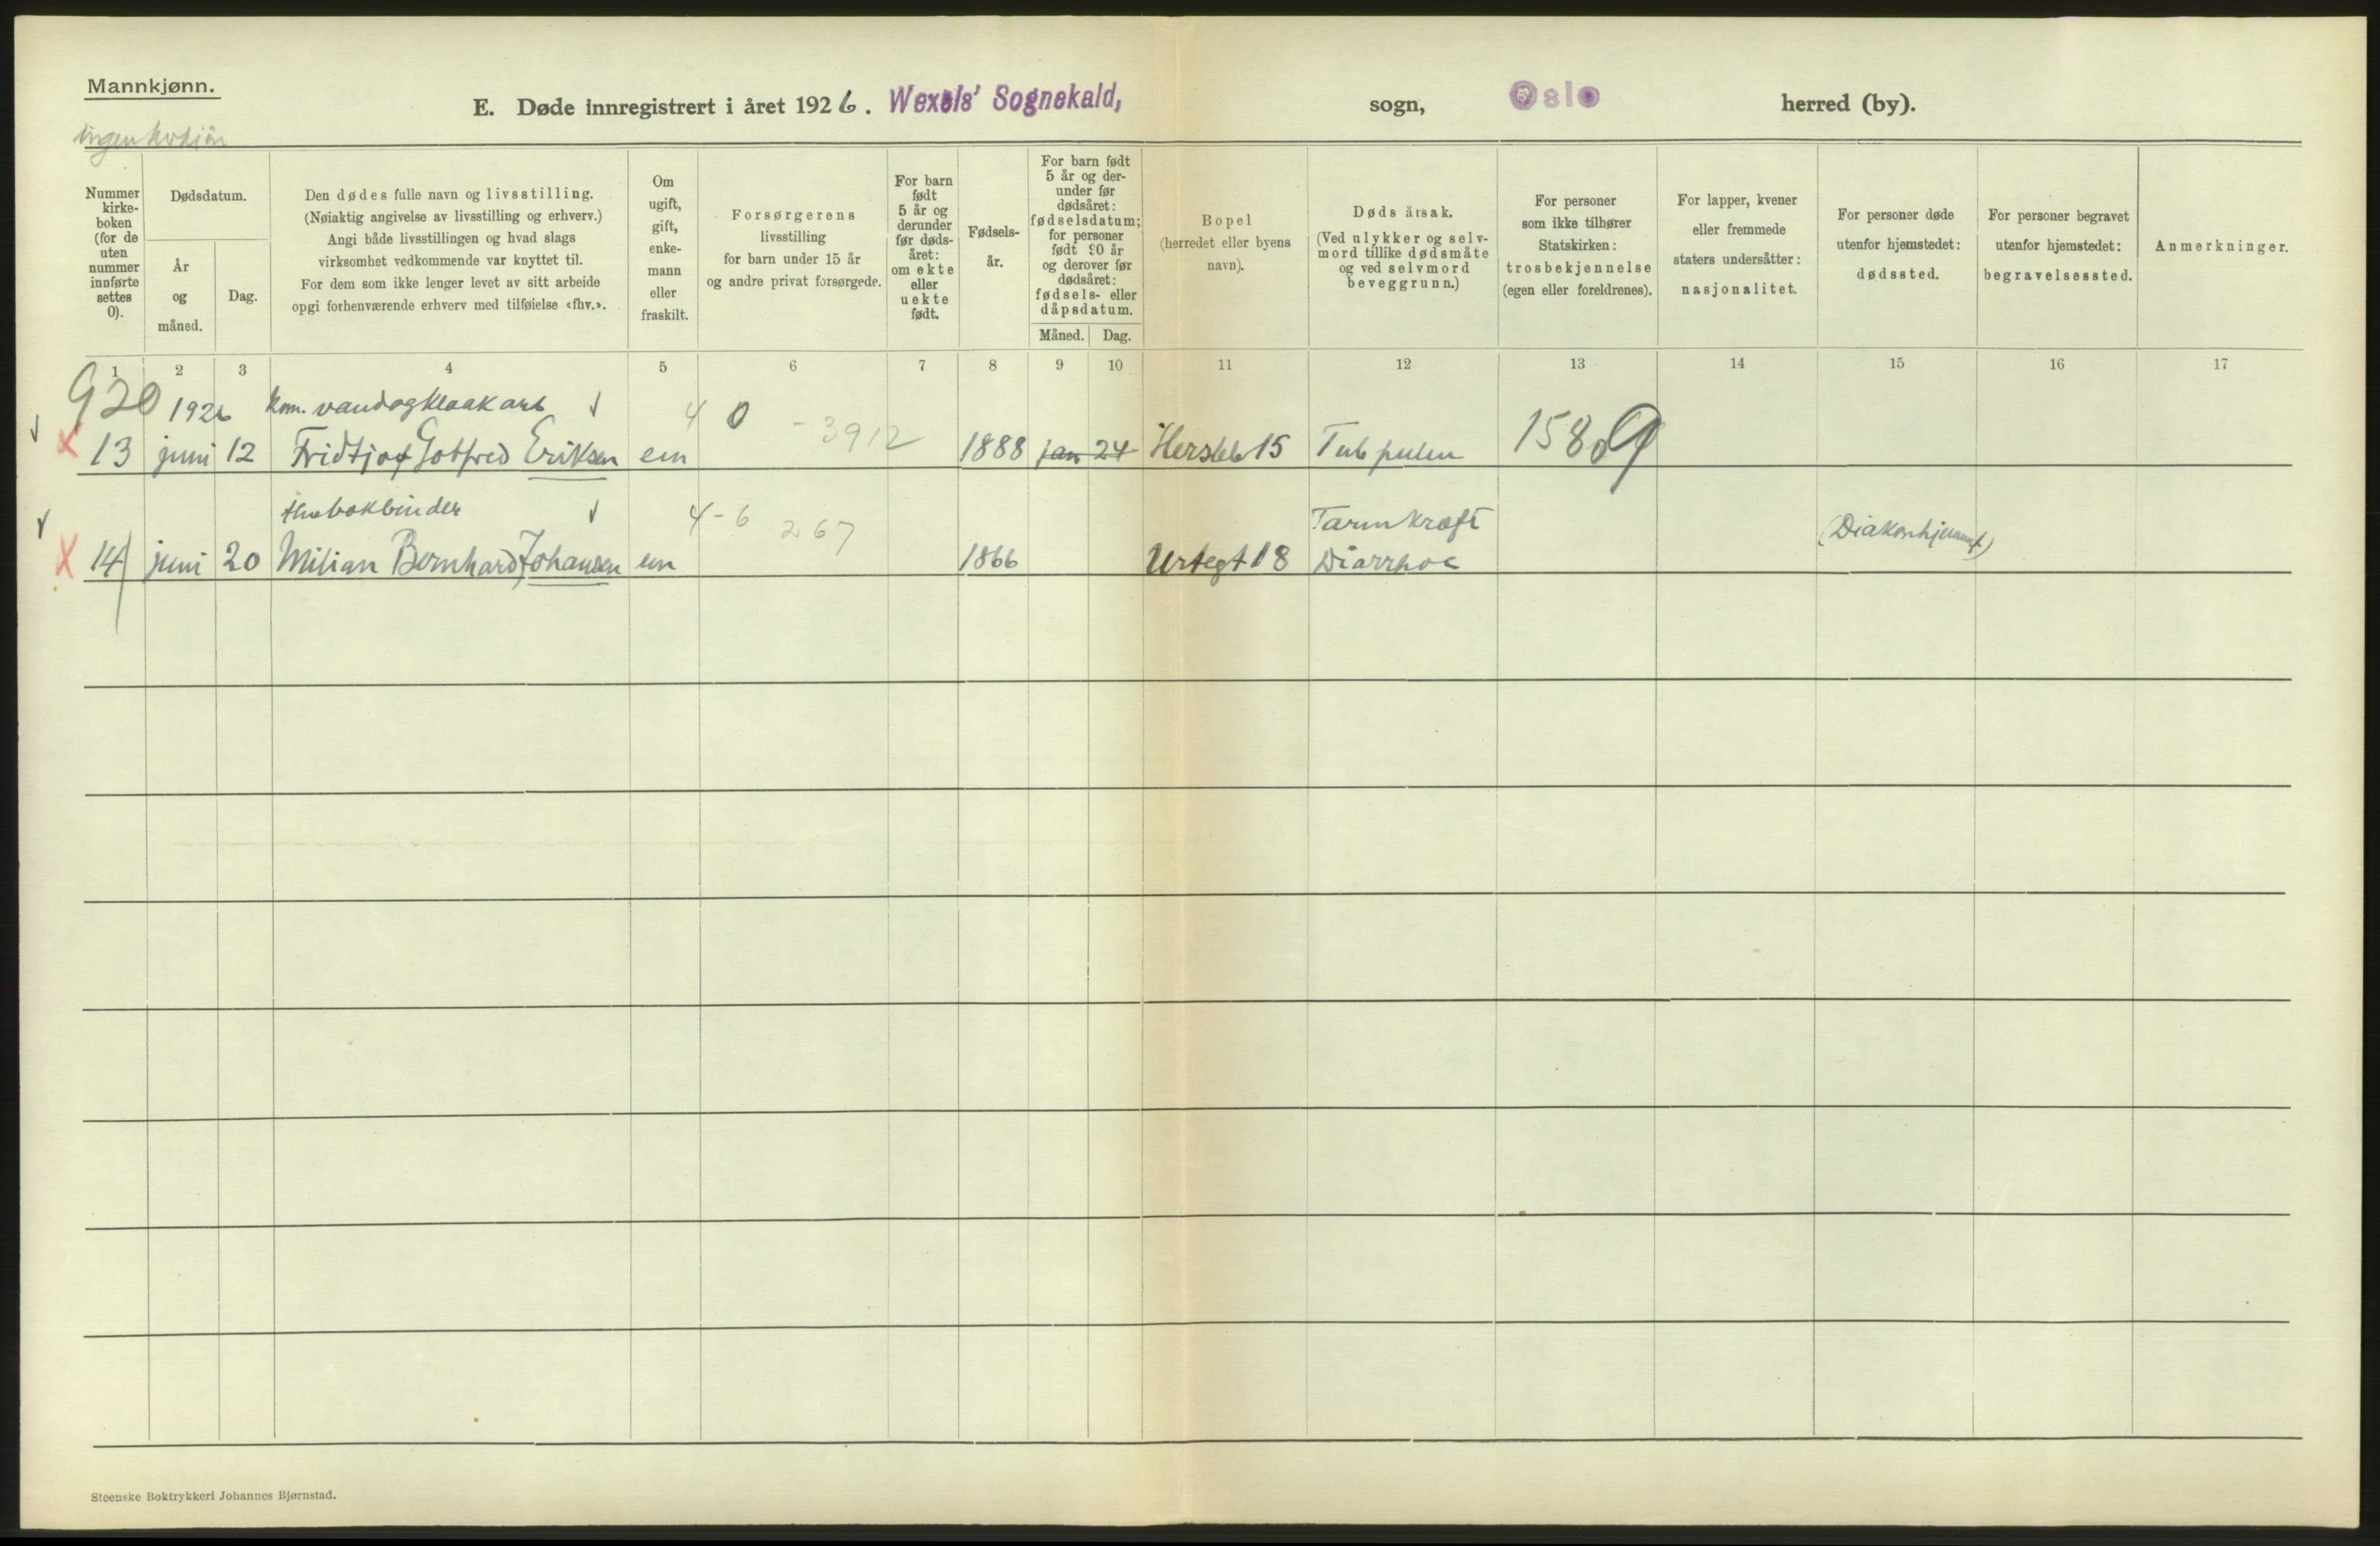 Mannkjønn.
E. Døde innregistrert i året 1926. Wexels' Sognekald, sogn, Oslo herred (by).
ingen
Nummer kirke-boken (for de uten nummer innførte settes 0).
Dødsdatum.
År og måned.
Dag.
Den dødes fulle navn og livsstilling.
(Nøiaktig angivelse av livsstilling og erhverv.)
Angi både livsstillingen og hvad slags
virksomhet vedkommende var knyttet til.
For dem som ikke lenger levet av sitt arbeide
opgi forhenværende erhverv med tilføielse «fhv.».
Om ugift, gift, enke-mann eller fraskilt.
Forsørgerens
livsstilling
for barn under 15 år
og andre privat forsørgede.
For barn født 5 år og derunder før døds-året: om ekte eller uekte født.
Fødsels-år.
For barn født 5 år og der-under før dødsåret: fødselsdatum; for personer født 90 år og derover før dødsåret: fødsels- eller dåpsdatum.
Måned. Dag.
Bopel
(herredet eller byens
navn).
Dødsårsak.
(Ved ulykker og selv-
mord tillike dødsmåte
og ved selvmord
beveggrunn.)
For personer
som ikke tilhører
Statskirken:
trosbekjennelse
(egen eller foreldrenes).
For lapper, kvener
eller fremmede
staters undersåtter:
nasjonalitet.
For personer døde
utenfor hjemstedet:
dødssted.
For personer begravet
utenfor hjemstedet:
begravelsessted.
Anmerkninger.
1 2 3 4 5 6 7 8 9 10 11 12 13 14 15 16 17
920 1926 kom. vandogkloakarb 4 0 - 3912
13 juni 12 Fridtjof Gotfred Eriksen em 1888 jan 24 Hersleb 15 Tub pulm 1580
fhv bokbinder 4-6 267 Tarmkræft
14 juni 20 Milian Bernhard Johansen em 1866 Urtegt 18 Diarrhoe (Diakonhjemmet)
Steenske Boktrykkeri Johannes Bjørnstad.